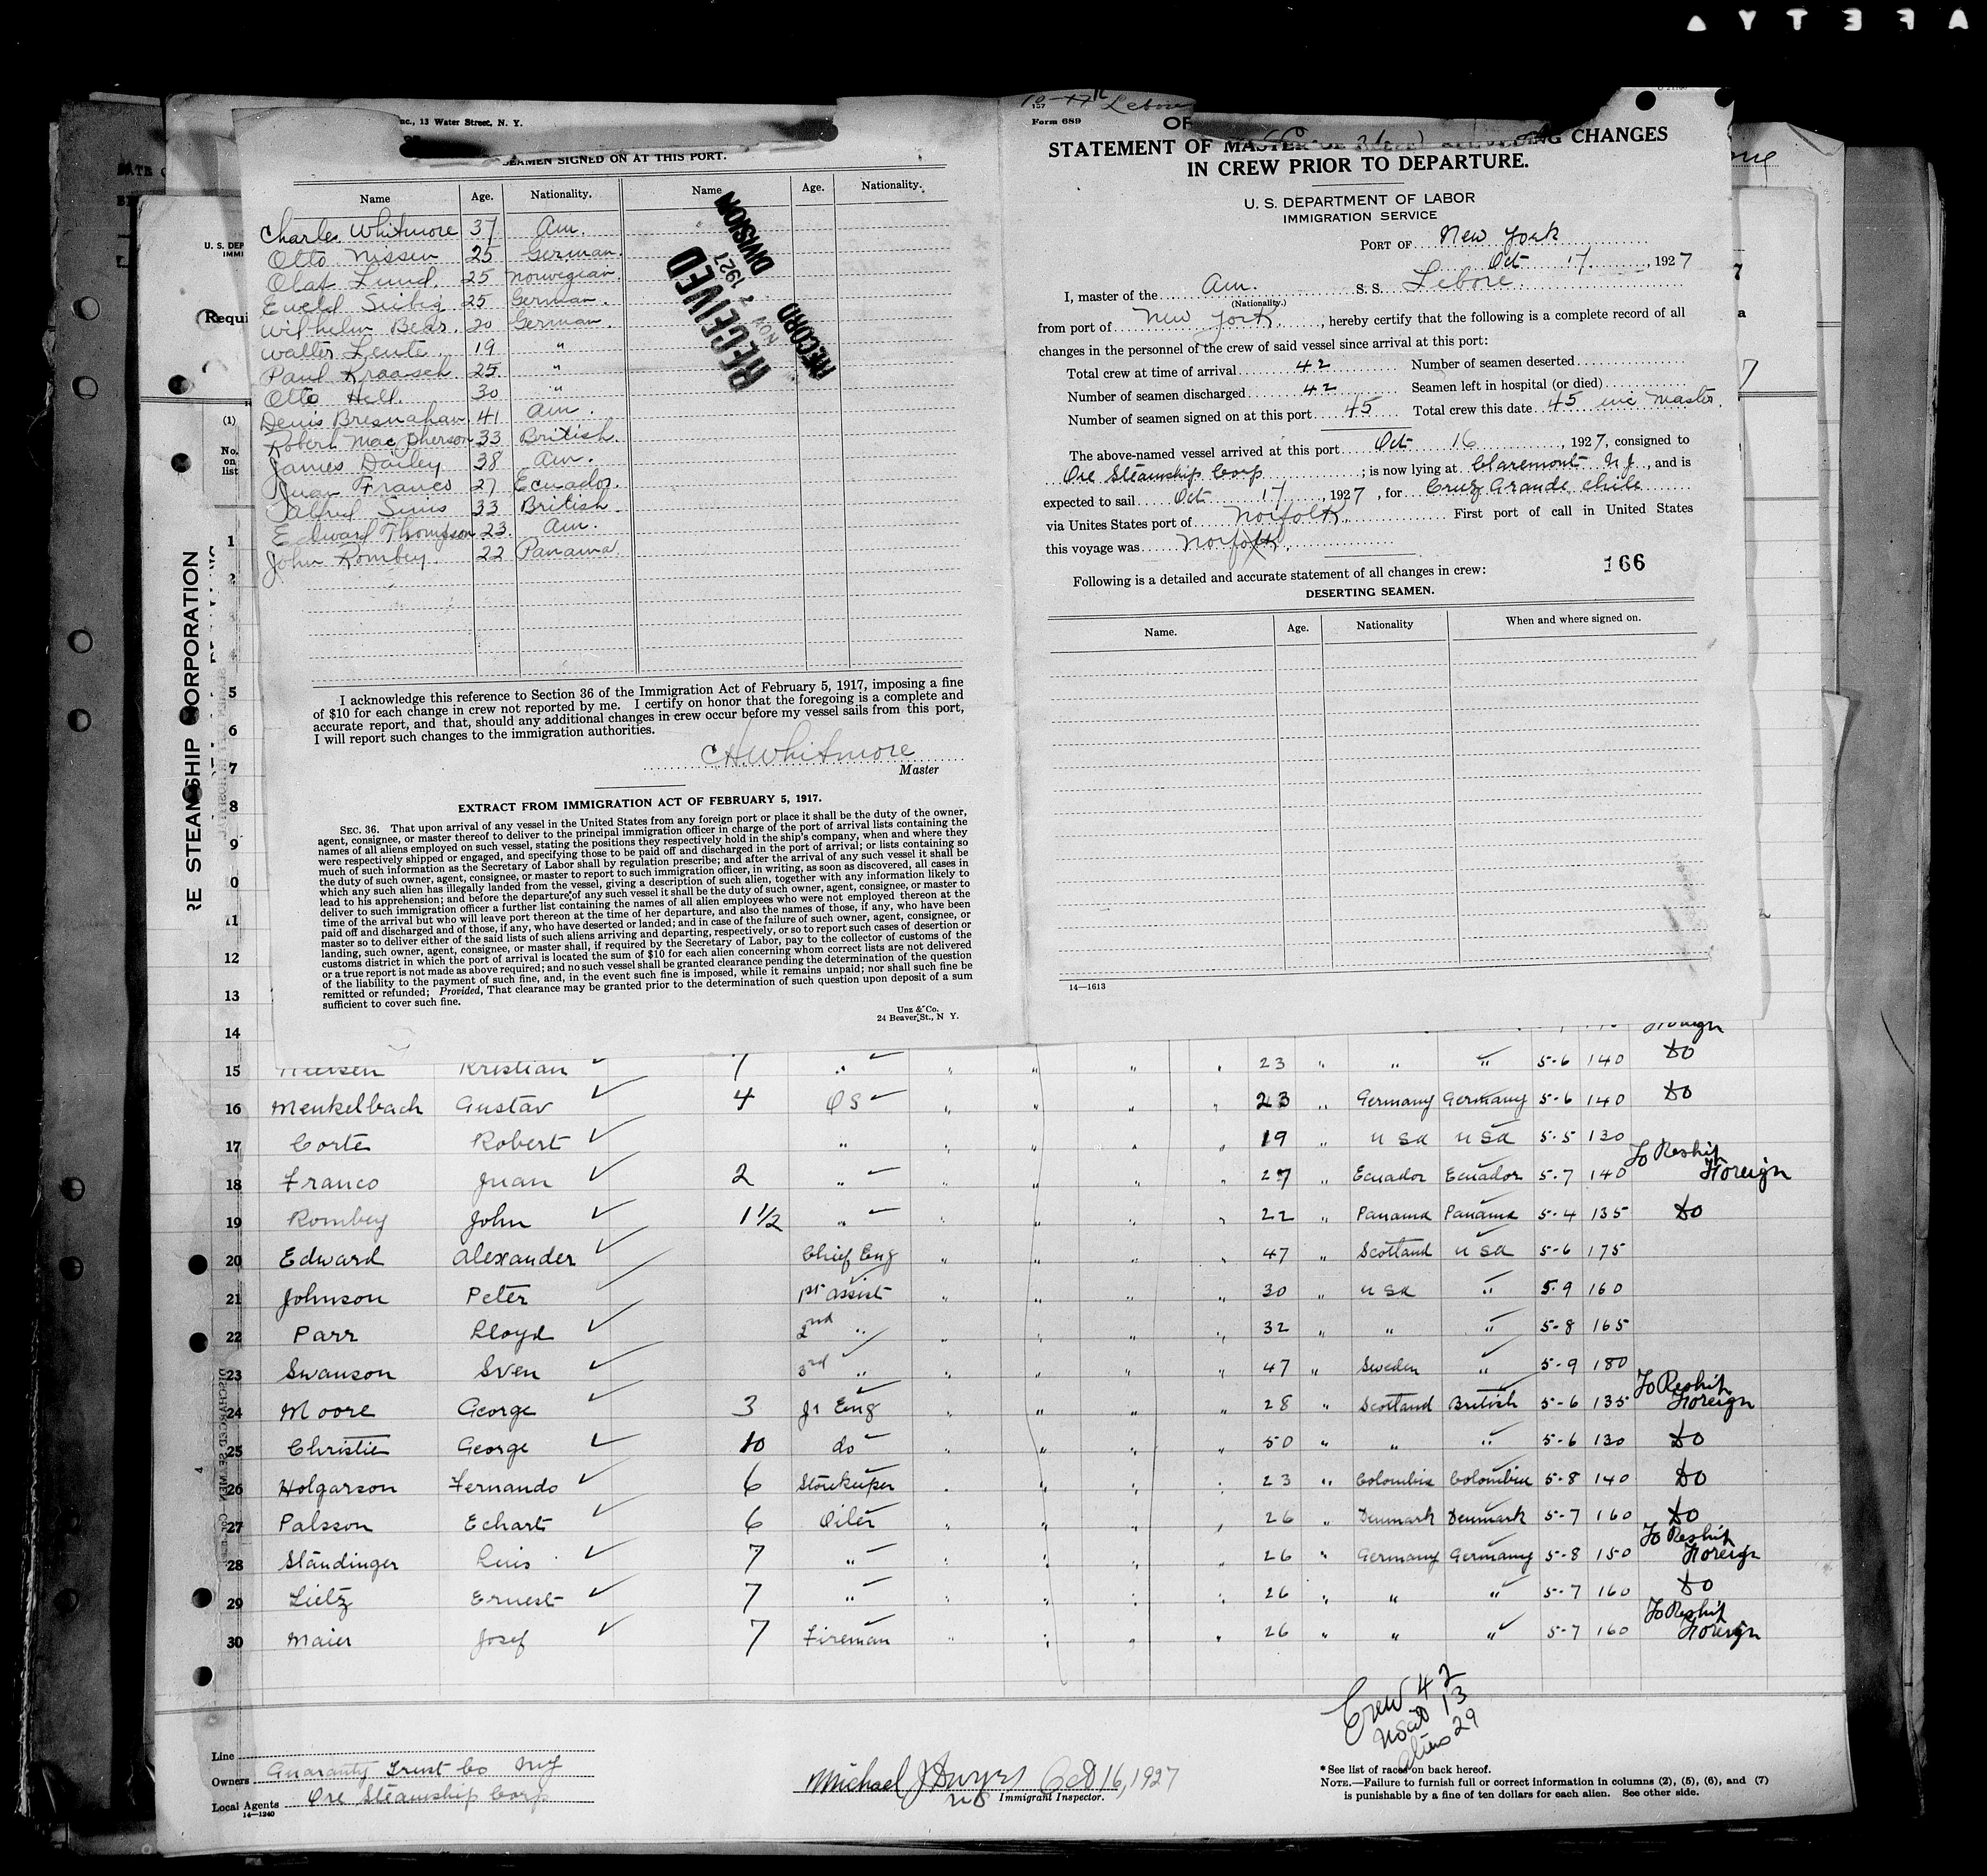 Inc., 13 Water Street, N. Y.
SEAMEN SIGNED ON AT THIS PORT.
Name Age. Nationality. Name Age. Nationality.
Charles Whitmore 37 Am.
Otto Nissen 25 German.
Olaf Lund. 25 Norwegian.
Eweld Siebig 25 German.
Wilhelm Behr. 20 German.
Walter Lente. 19 "
Paul Kraasch. 25. "
Otto Hell. 30 "
Denis Bresnahan. 41 Am.
Robert MacPherson 33 British.
James Dailey 38 Am.
Juan Franco 27 Ecuador.
Alfred Sims 33 British.
Edward Thompson 23. Am.
John Rombey. 22 Panama.
RECEIVED
NOV 2 1927
RECORD DIVISION
I acknowledge this reference to Section 36 of the Immigration Act of February 5, 1917, imposing a fine
of $10 for each change in crew not reported by me. I certify on honor that the foregoing is a complete and
accurate report, and that, should any additional changes in crew occur before my vessel sails from this port,
I will report such changes to the immigration authorities.
CHWhitmore
Master
EXTRACT FROM IMMIGRATION ACT OF FEBRUARY 5, 1917.
SEC. 36. That upon arrival of any vessel in the United States from any foreign port or place it shall be the duty of the owner,
agent, consignee, or master thereof to deliver to the principal immigration officer in charge of the port of arrival lists containing the
names of all aliens employed on such vessel, stating the positions they respectively hold in the ship's company, when and where they
were respectively shipped or engaged, and specifying those to be paid off and discharged in the port of arrival; or lists containing so
much of such information as the Secretary of Labor shall by regulation prescribe; and after the arrival of any such vessel it shall be
the duty of such owner, agent, consignee, or master to report to such immigration officer, in writing, as soon as discovered, all cases in
which any such alien has illegally landed from the vessel, giving a description of such alien, together with any information likely to
lead to his apprehension; and before the departure of any such vessel it shall be the duty of such owner, agent, consignee, or master to
deliver to such immigration officer a further list containing the names of all alien employees who were not employed thereon at the
time of the arrival but who will leave port thereon at the time of her departure, and also the names of those, if any, who have been
paid off and discharged and of those, if any, who have deserted or landed; and in case of the failure of such owner, agent, consignee, or
master so to deliver either of the said lists of such aliens arriving and departing, respectively, or so to report such cases of desertion or
landing, such owner, agent, consignee, or master shall, if required by the Secretary of Labor, pay to the collector of customs of the
customs district in which the port of arrival is located the sum of $10 for each alien concerning whom correct lists are not delivered
or a true report is not made as above required; and no such vessel shall be granted clearance pending the determination of the question
of the liability to the payment of such fine, and, in the event such fine is imposed, while it remains unpaid; nor shall such fine be
remitted or refunded; Provided, That clearance may be granted prior to the determination of such question upon deposit of a sum
sufficient to cover such fine.
Unz & Co.
24 Beaver St., N. Y.
Lebore
157
Form 689
STATEMENT OF MASTER CHANGES
IN CREW PRIOR TO DEPARTURE.
U. S. DEPARTMENT OF LABOR
IMMIGRATION SERVICE
PORT OF New York
Oct 17, 1927
I, master of the Am. S. S. Lebore.
(Nationality.)
from port of New York, hereby certify that the following is a complete record of all
changes in the personnel of the crew of said vessel since arrival at this port:
Total crew at time of arrival 42 Number of seamen deserted
Number of seamen discharged 42 Seamen left in hospital (or died)
Number of seamen signed on at this port 45 Total crew this date 45 inc master.
The above-named vessel arrived at this port Oct 16, 1927, consigned to
Ore Steamship Corp; is now lying at Claremont N.J., and is
expected to sail Oct 17, 1927, for Cruz Grande Chile
via Unites States port of Norfolk. First port of call in United States
this voyage was Norfolk.
166
Following is a detailed and accurate statement of all changes in crew:
DESERTING SEAMEN.
Name. Age. Nationality When and where signed on.
14—1613
U. S. DEP
IMMI
Requi
(1)
No. on list
RE STEAMSHIP CORPORATION
1
2
3
4
5
6
7
8
9
10
11
12
13
14 Foreign
15 Kristian 7 " 23 " " " 5-6 140 Do
16 Menkelbach Gustav 4 OS 23 " Germany Germany 5-6 140 Do
17 Corte Robert " 19 " USA USA 5-5 130
18 Franco Juan 2 " 27 " Ecuador Ecuador 5-7 140 To Reship Foreign
19 Rombey John 1 1/2 " 22 " Panama Panama 5-4 135 Do
20 Edward Alexander Chief Eng 47 " Scotland USA 5-6 175
21 Johnson Peter 1st assist 30 " USA " 5-9 160
22 Parr Lloyd 2nd " 32 " " " 5-8 165
23 Swanson Sven 3rd " 47 " Sweden " 5-9 180
24 Moore George 3 Jr Eng 28 " Scotland British 5-6 135 To Reship Foreign
25 Christie George 10 do 50 " " " 5-6 130 Do
26 Holgarson Fernando 6 Storekeeper 23 " Colombia Colombia 5-8 140 Do
27 Palsson Echart 6 Oiler 26 " Denmark Denmark 5-7 160 Do
28 Standinger Luis 7 " 26 " Germany Germany 5-8 150 To Reship Foreign
29 Lietz Ernest 7 " 26 " " " 5-7 160 Do
30 Maier Josef 7 Fireman 26 " " " 5-7 160 To Reship Foreign
Crew 42
USCit 13
Aliens 29
Line
Owners Guaranty Trust Co NY
Local Agents Ore Steamship Corp
14—1240
Michael J Dwyer Oct 16, 1927
Immigrant Inspector.
* See list of races on back hereof.
NOTE.—Failure to furnish full or correct information in columns (2), (5), (6), and (7)
is punishable by a fine of ten dollars for each alien. See other side.